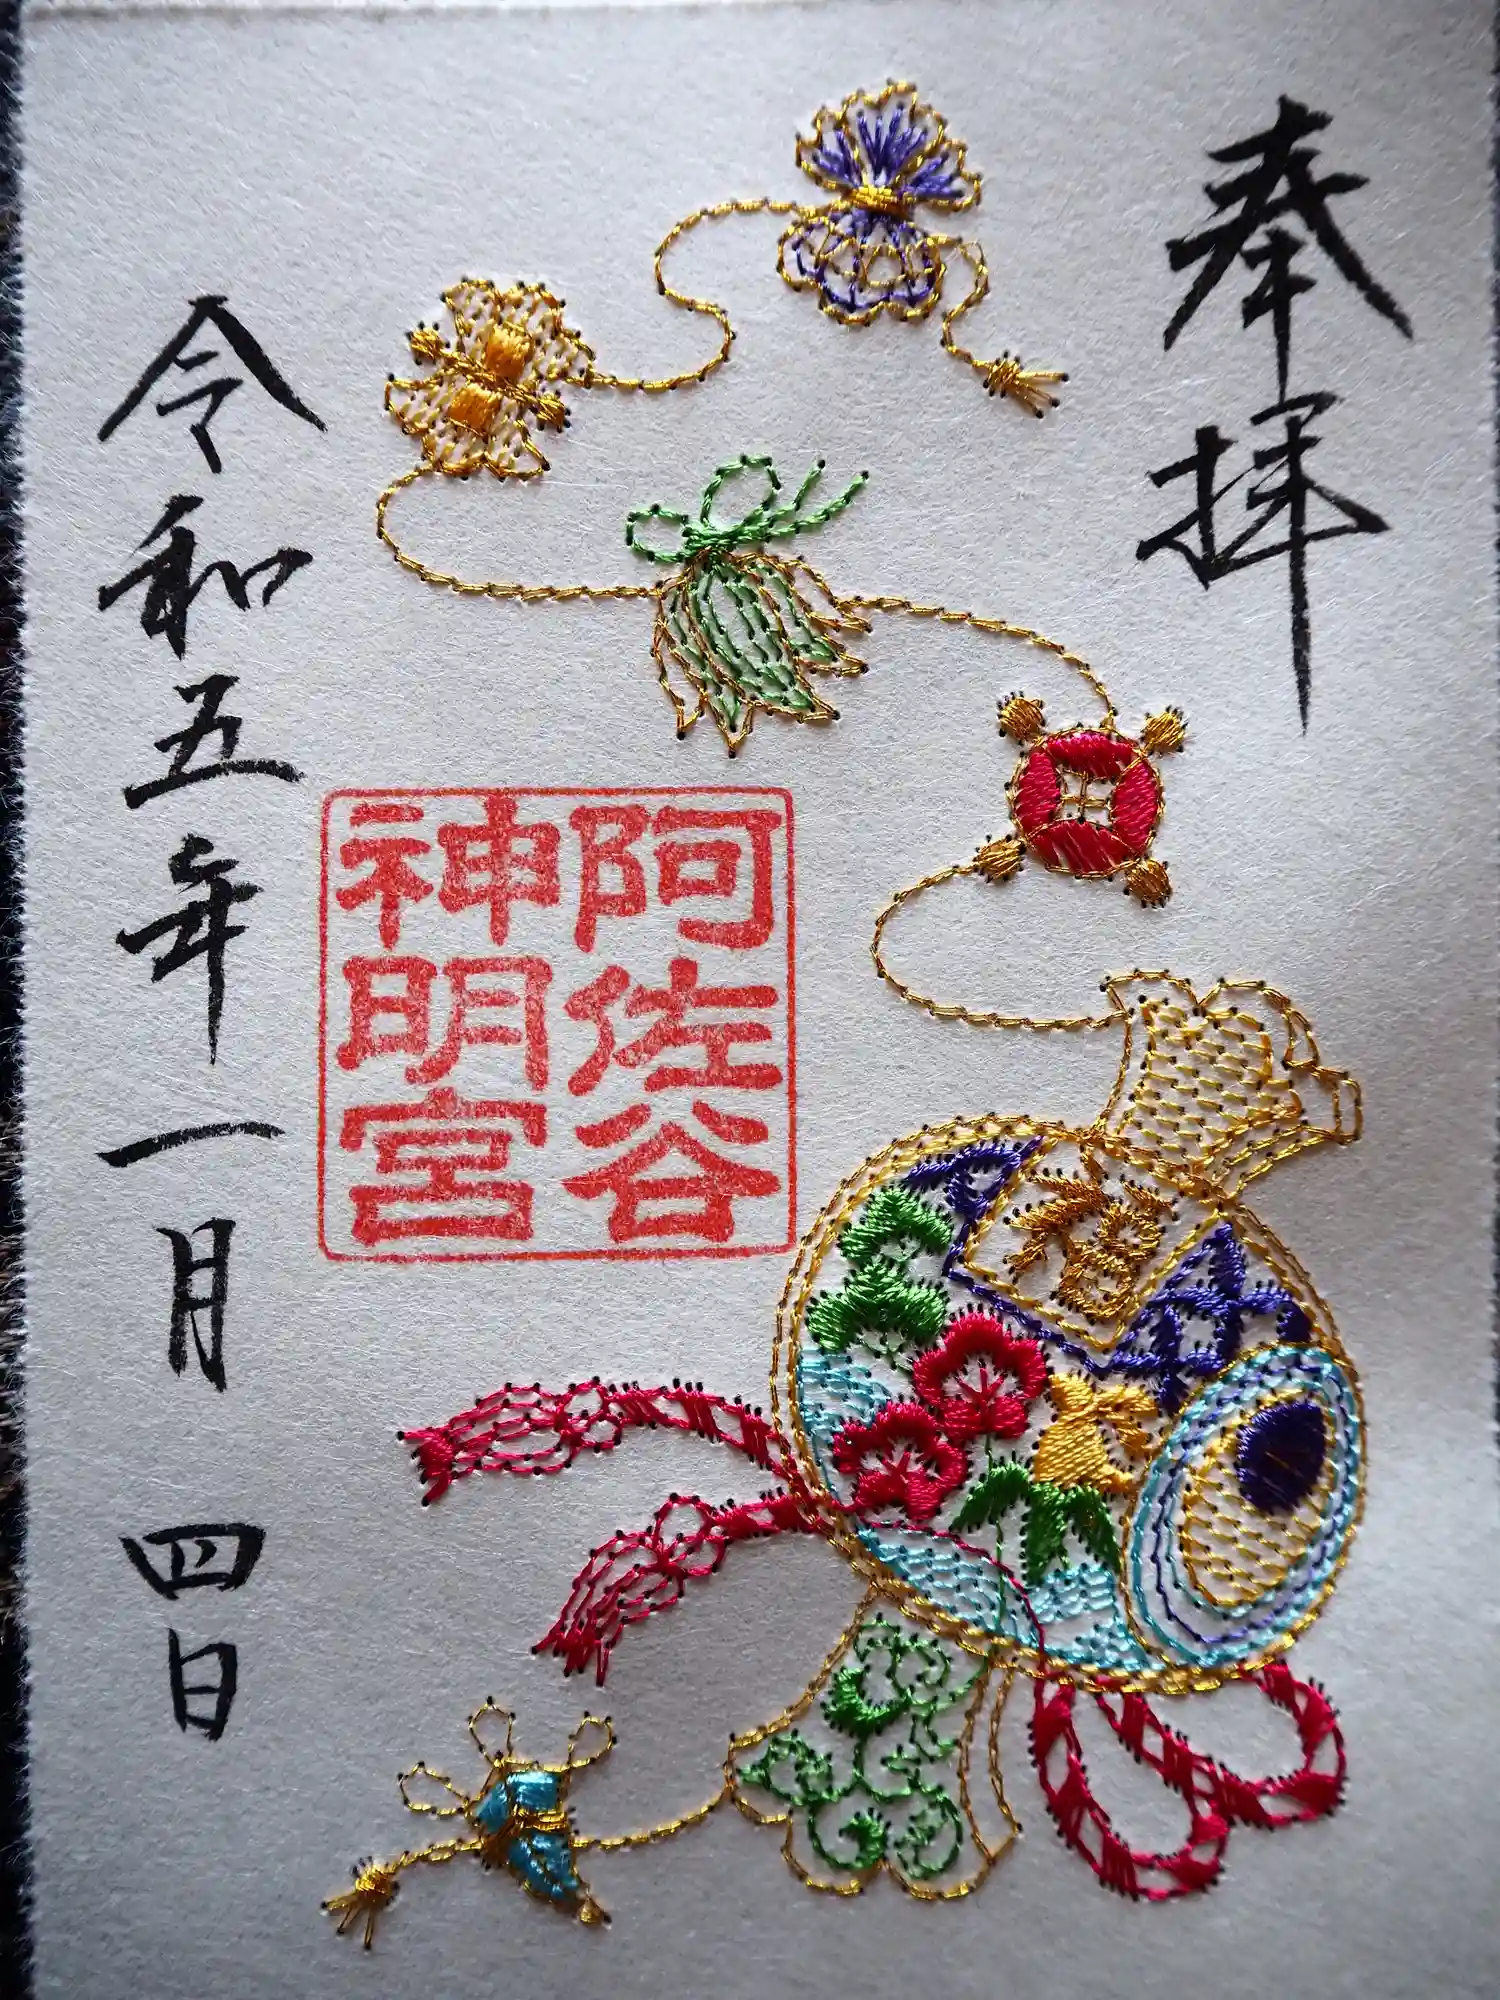 奉拝
阿佐谷
神明宮
福
令和五年一月四日